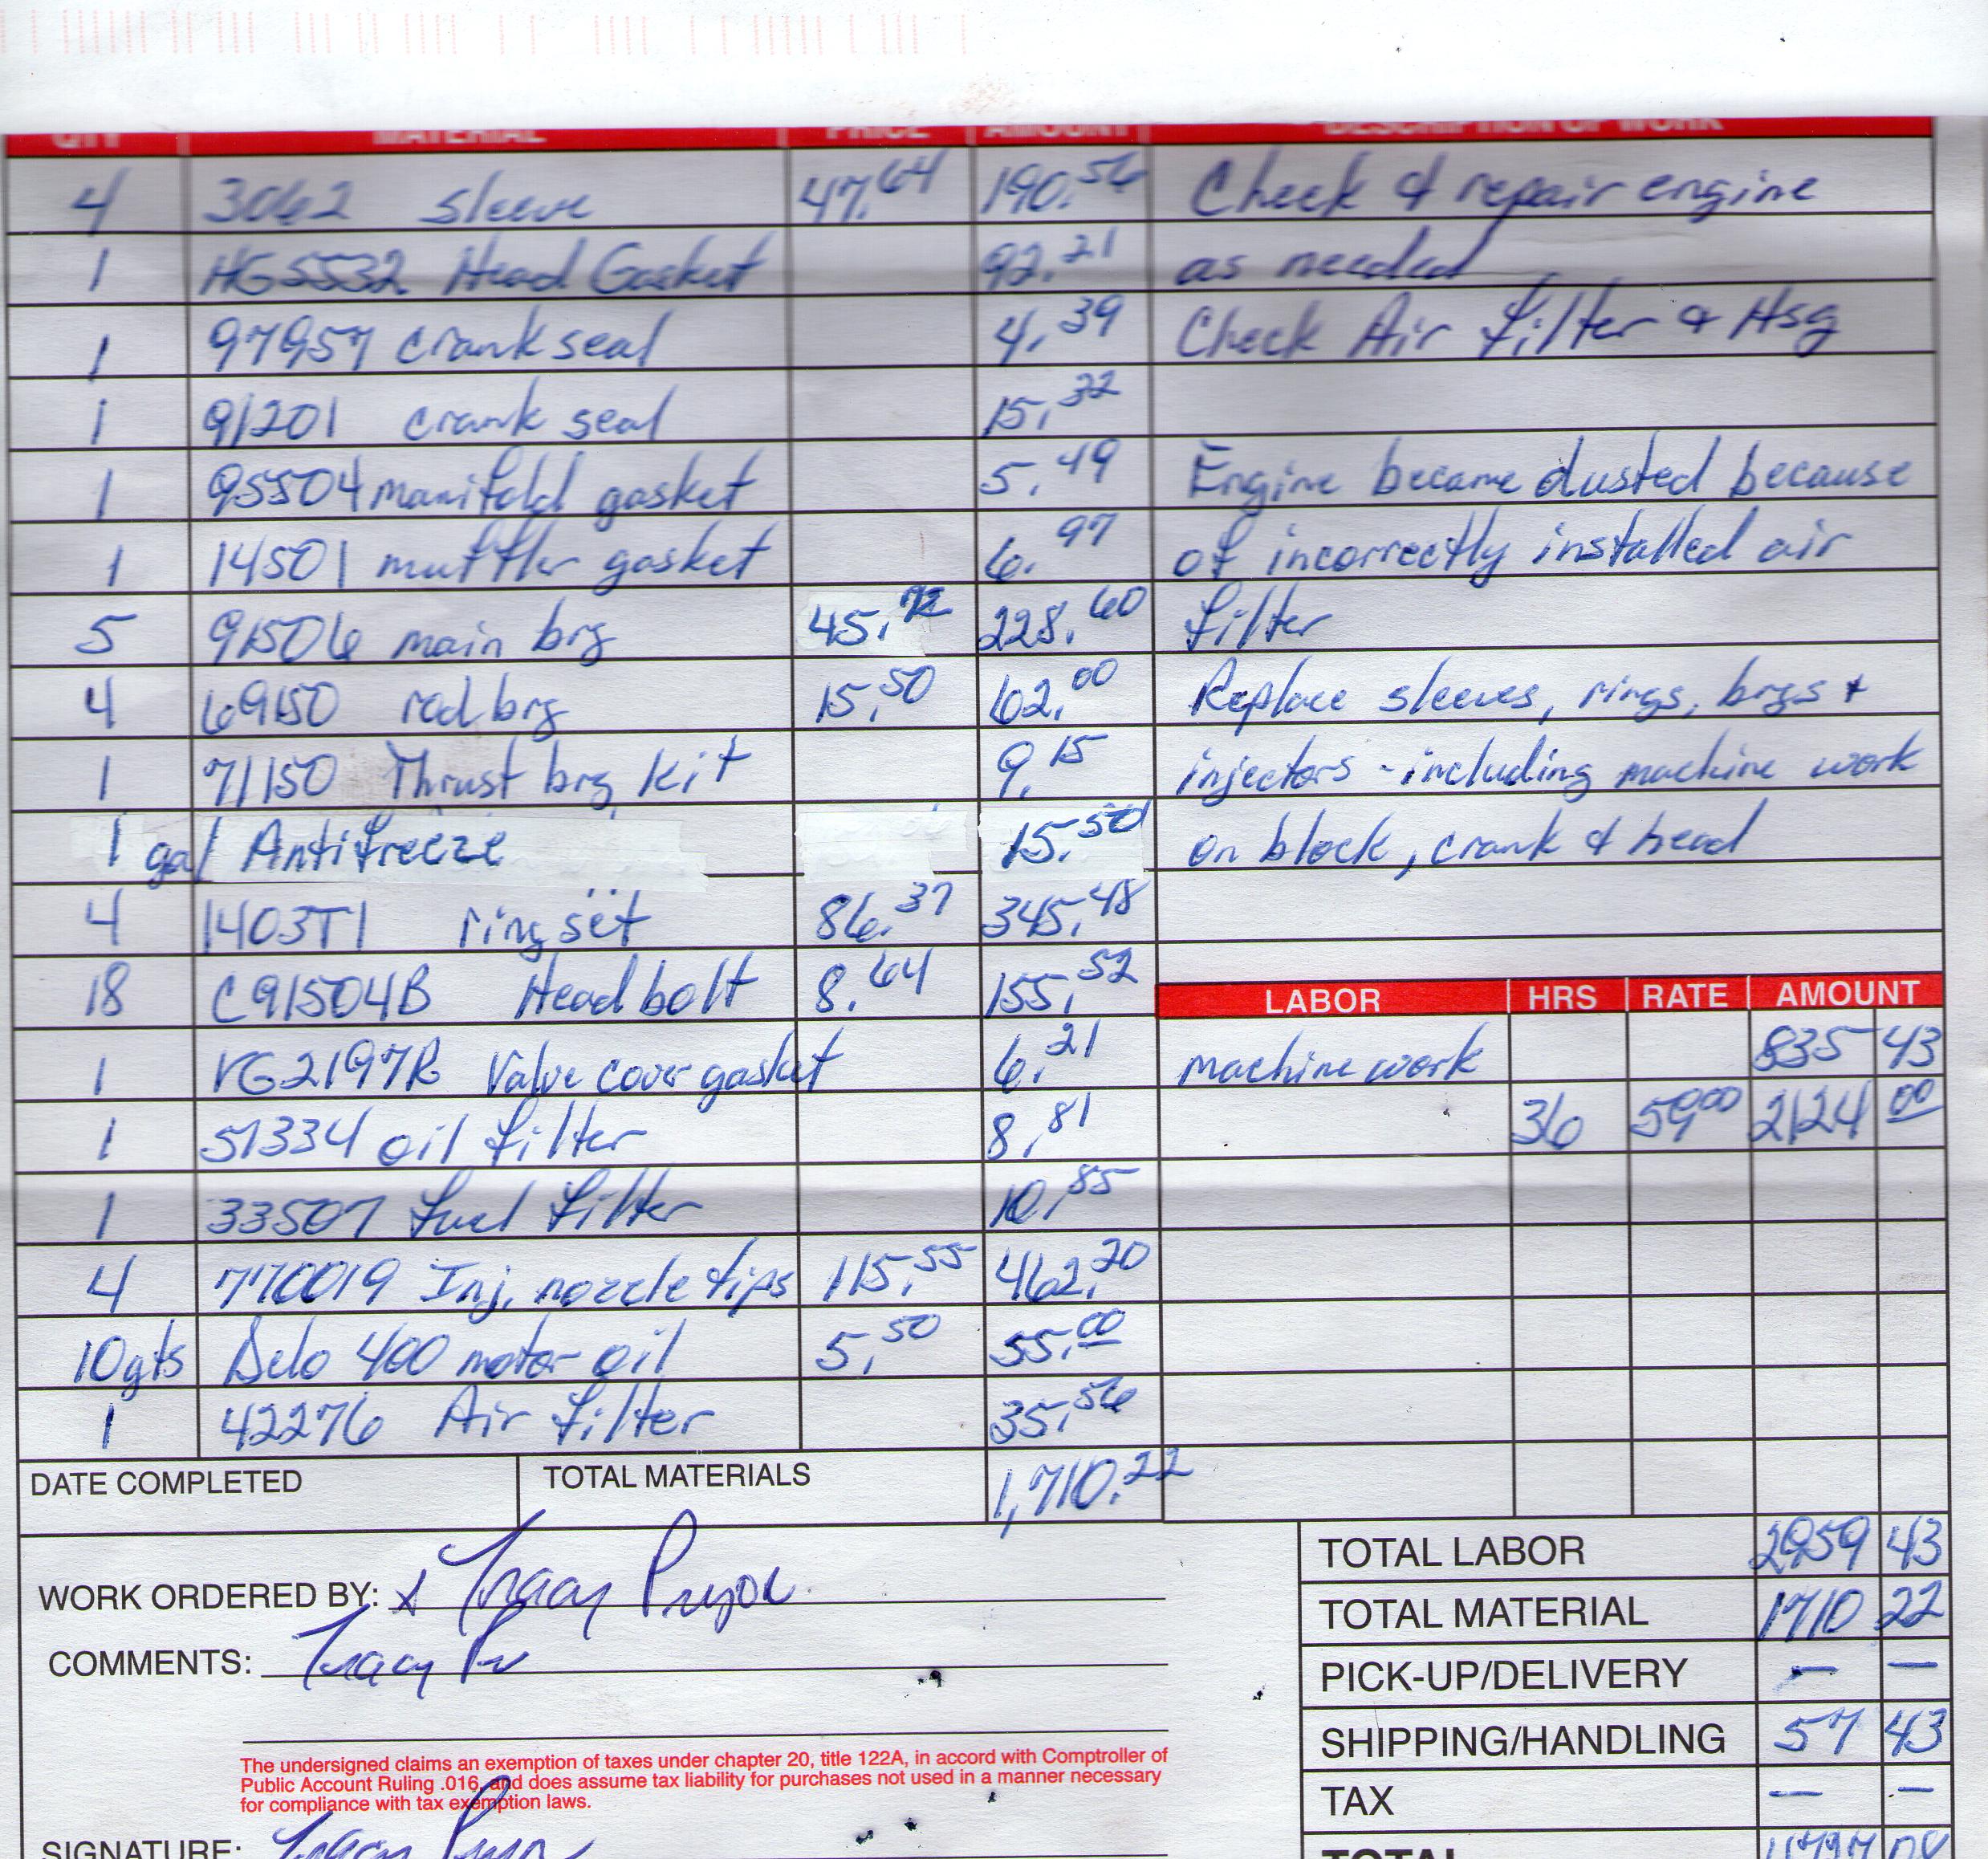 QTY MATERIAL PRICE AMOUNT DESCRIPTION OF WORK
4 3062 sleeve 47.64 190.56 Check & repair engine
1 HG5532 Head Gasket 92.21 as needed
1 97957 crank seal 4.39 Check Air filter & Hsg
1 91201 crank seal 15.32
1 95504 manifold gasket 5.49 Engine became dusted because
1 14501 muffler gasket 6.97 of incorrectly installed air
5 91506 main brg 45.72 228.60 filter
4 69150 rod brg 15.50 62.00 Replace sleeves, rings, brgs +
1 71150 Thrust brg kit 9.15 injectors - including machine work
1 gal Antifreeze 15.50 on block, crank & head
4 1403T1 ring set 86.37 345.48
18 C91504B Head bolt 8.64 155.52
LABOR HRS RATE AMOUNT
1 VG2197R Valve cover gasket 6.21 machine work 835 43
1 51334 oil filter 8.81 36 59.00 2124 00
1 33507 fuel filter 10.85
4 770019 Inj. nozzle tips 115.55 462.20
10 qts Delo 400 motor oil 5.50 55.00
1 42276 Air filter 35.56
DATE COMPLETED TOTAL MATERIALS 1,710.22
TOTAL LABOR 2959 43
WORK ORDERED BY: x Tracy Pryor
TOTAL MATERIAL 1710 22
COMMENTS: Tracy
PICK-UP/DELIVERY — —
SHIPPING/HANDLING 57 43
The undersigned claims an exemption of taxes under chapter 20, title 122A, in accord with Comptroller of
Public Account Ruling .016, and does assume tax liability for purchases not used in a manner necessary
for compliance with tax exemption laws.
TAX — —
SIGNATURE: Tracy Pryor
TOTAL